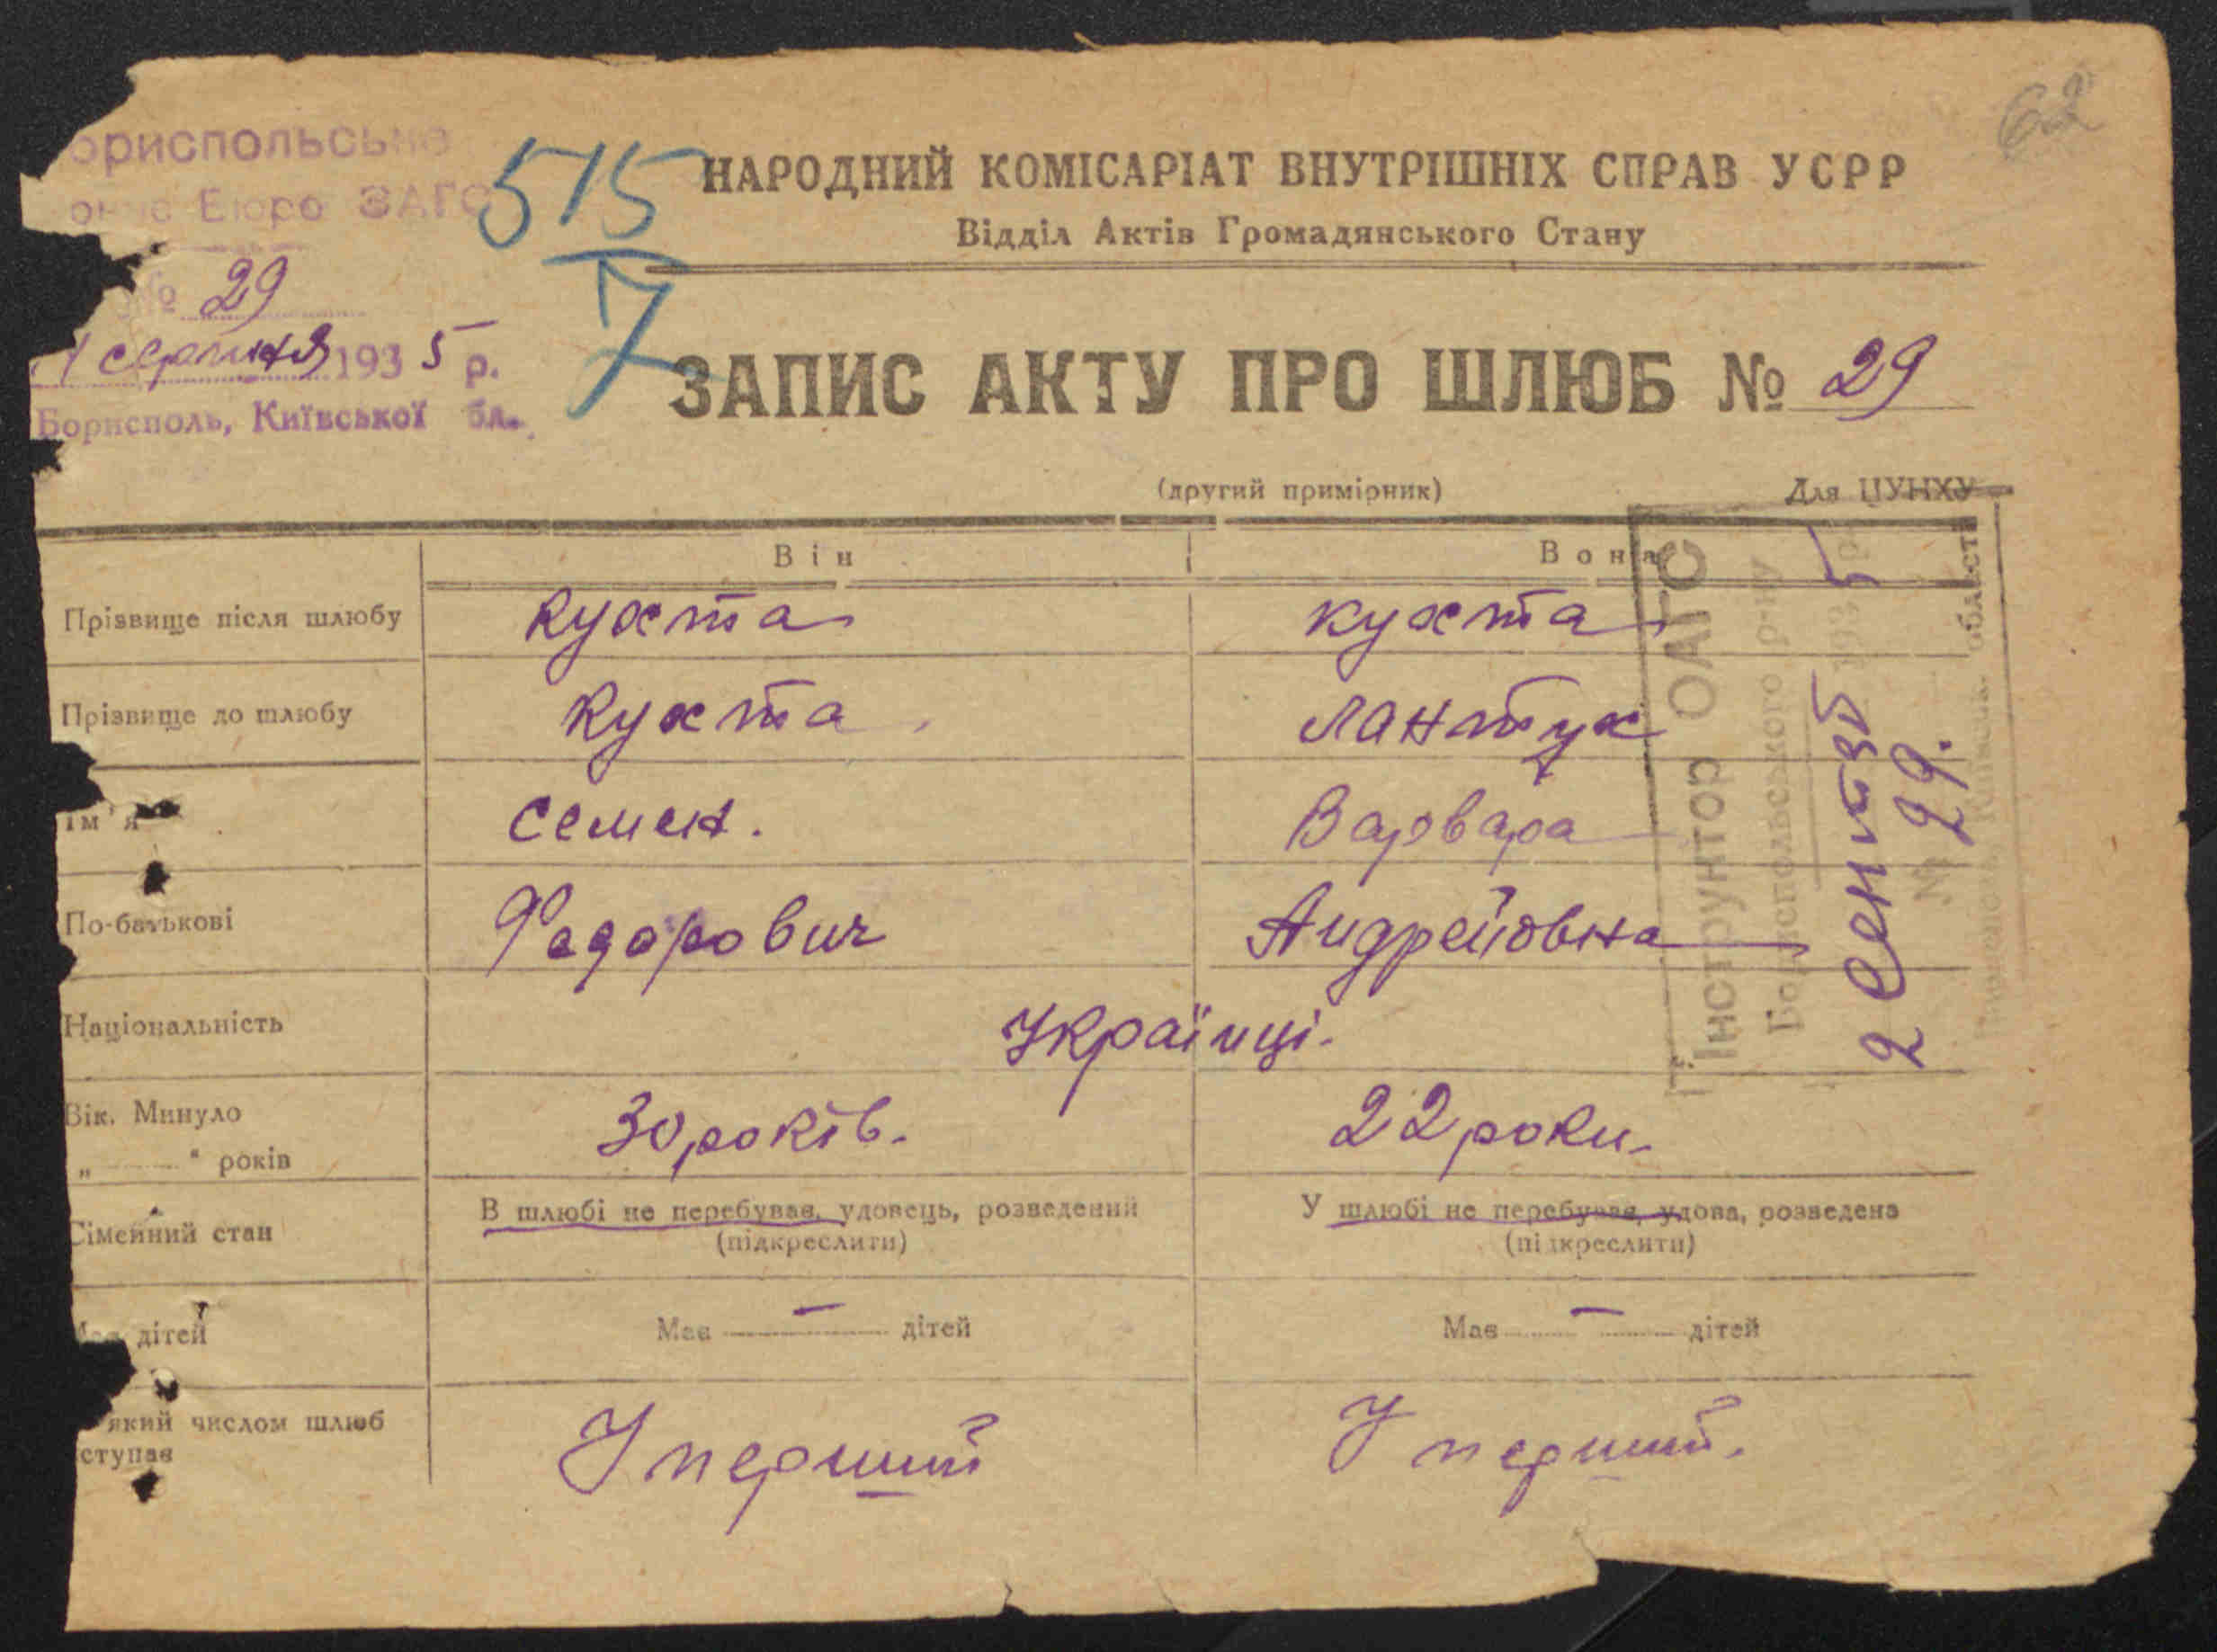 62
ориспольсь
Бюро ЗАГС
№ 29
1 серпня 1935 р.
Борисполь, Київської бл.
515
7
НАРОДНИЙ КОМІСАРІАТ ВНУТРІШНІХ СПРАВ УСРР
Відділ Актів Громадянського Стану
ЗАПИС АКТУ ПРО ШЛЮБ № 29
(другий примірник) Для ЦУНХУ
Він Вона
Прізвище після шлюбу Кухта Кухта
Прізвище до шлюбу Кухта Лантух
Ім'я Семен. Варвара
По-батькові Федорович Андрейовна
Національність Українці.
Вік. Минуло 30 років. 22 роки.
„ “ років
Сімейний стан В шлюбі не перебував, удовець, розведений У шлюбі не перебувала, удова, розведена
(підкреслити) (підкреслити)
дітей Має — дітей Має — дітей
який числом шлюб У перший У перший.
ступає
Інструктор ОАГС
Бориспольського р-ну
2 сент 1935 р.
№ 29.
області